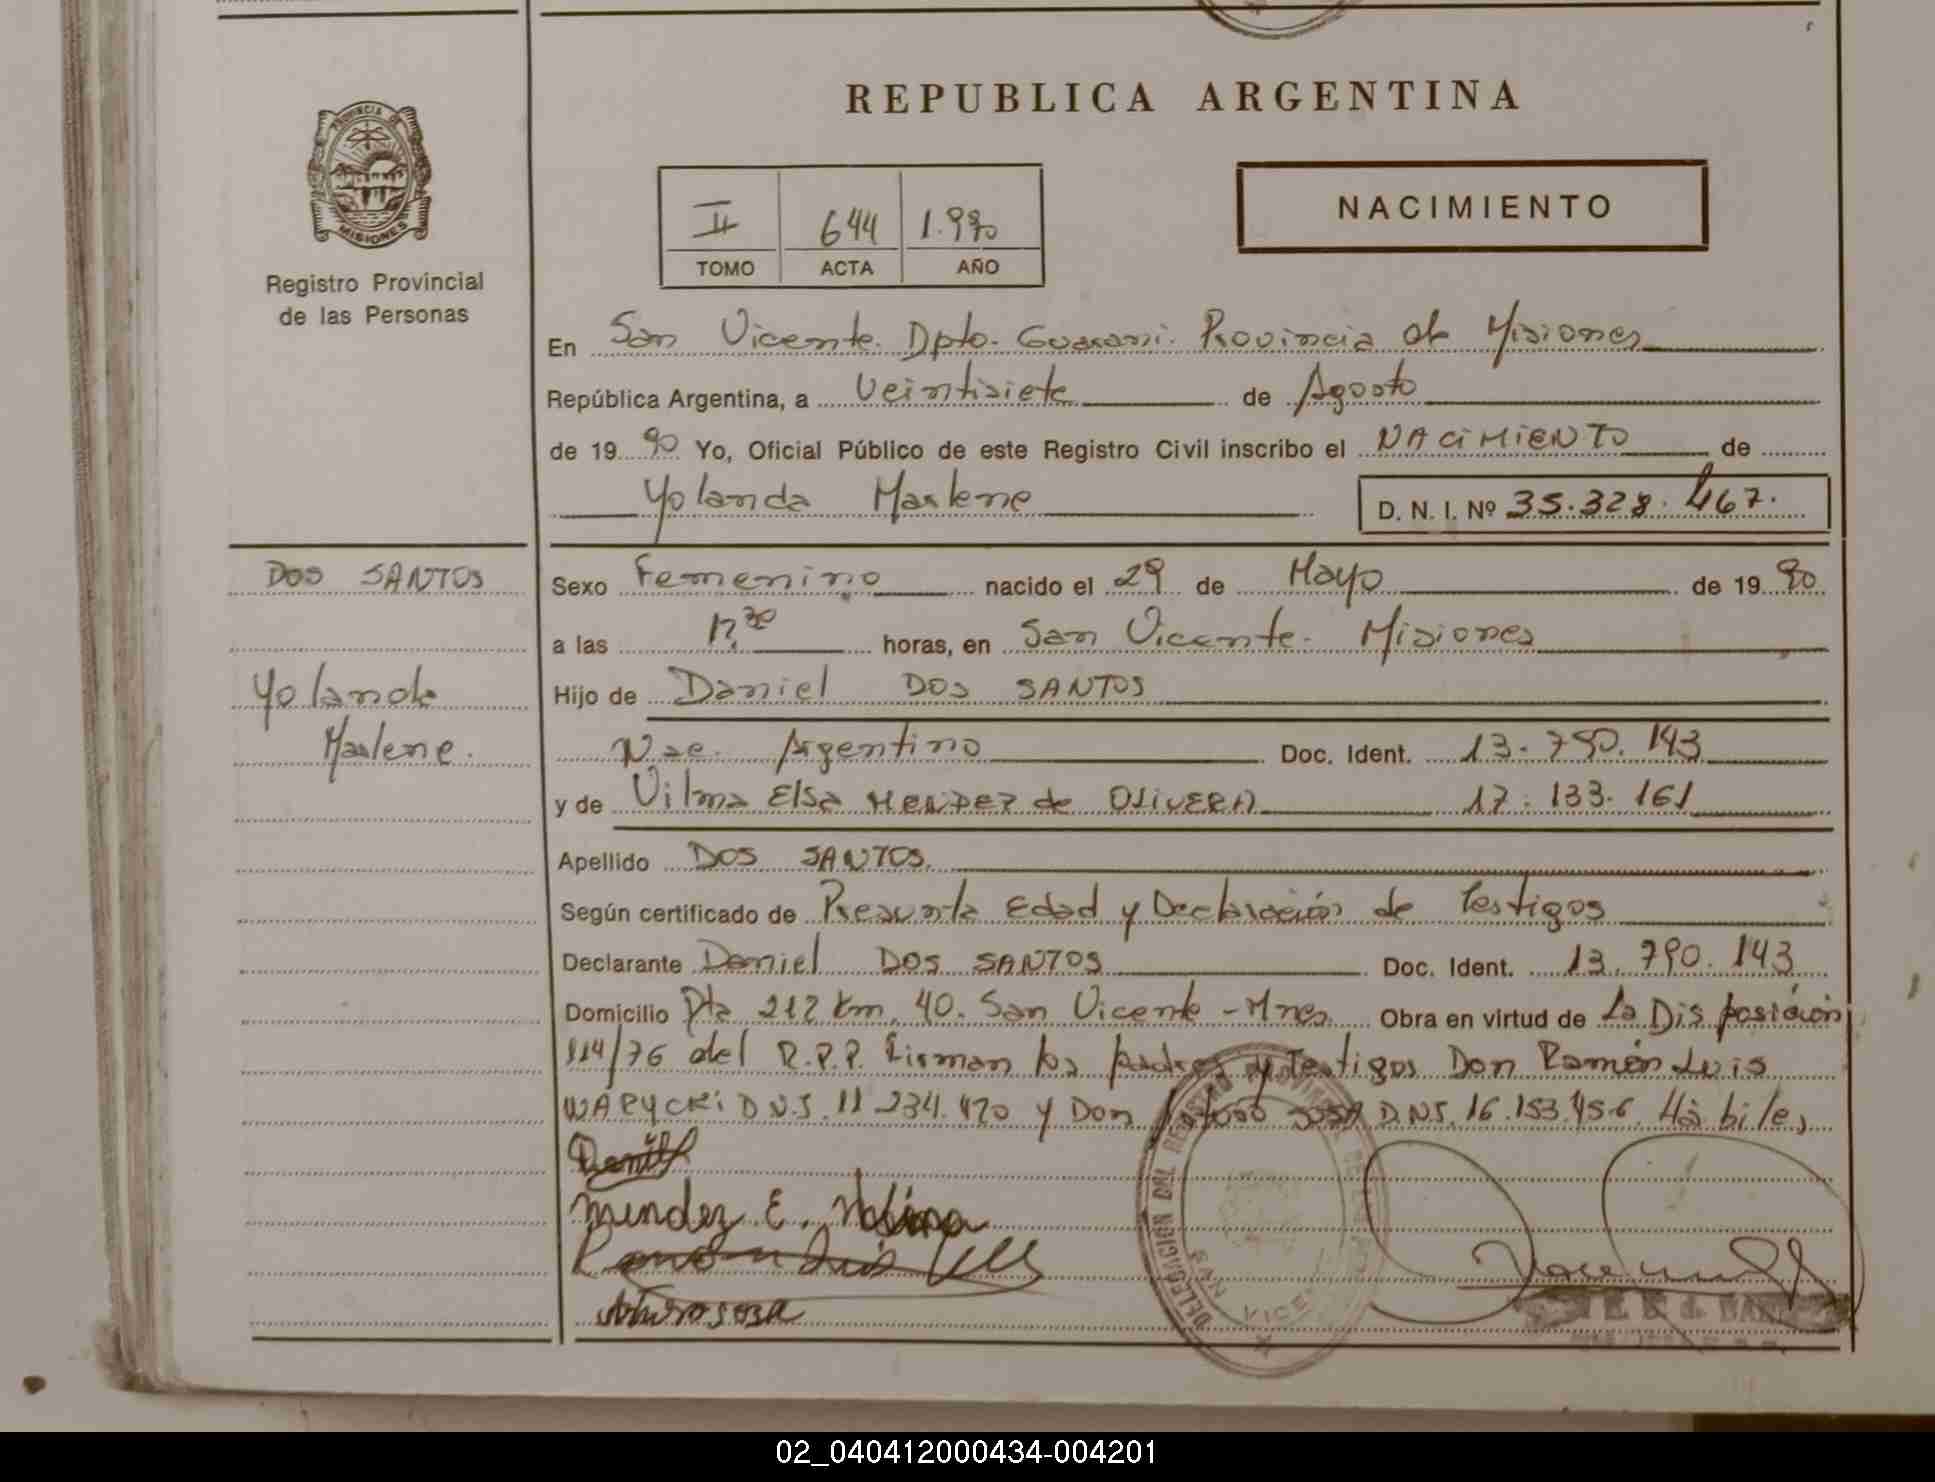 REPUBLICA ARGENTINA
PROVINCIA DE
MISIONES
Registro Provincial
de las Personas
II 644 1.990
TOMO ACTA AÑO
NACIMIENTO
En San Vicente. Dpto. Guarani. Provincia de Misiones
República Argentina, a veintisiete de Agosto
de 19 90 Yo, Oficial Público de este Registro Civil inscribo el NACIMIENTO de
Yolanda Marlene D. N. I. Nº 35.328.467.
DOS SANTOS
Yolanda
Marlene.
Sexo Femenino nacido el 29 de Mayo de 19 90
a las horas, en San Vicente. Misiones
Hijo de Daniel DOS SANTOS
Nac. Argentino Doc. Ident. 13.790.143
y de Vilma Elsa MENDEZ de OLIVERA 17.133.161
Apellido DOS SANTOS.
Según certificado de Presunta Edad y Declaración de Testigos
Declarante Daniel DOS SANTOS Doc. Ident. 13.790.143
Domicilio Pta 212 Km. 40. San Vicente - Mnes. Obra en virtud de La Disposición
114/76 del R.P.P. Firman los padres y Testigos Don Ramón Luis
WARYCKI D.N.I. 11.234.470 y Don Arturo SOSA D.N.I. 16.153.456. Hábiles
mendez E.
Ramon Luis
Arturo sosa
DELEGACION DEL REGISTRO PROVINCIAL DE LAS
SAN VICENTE
02_040412000434-004201